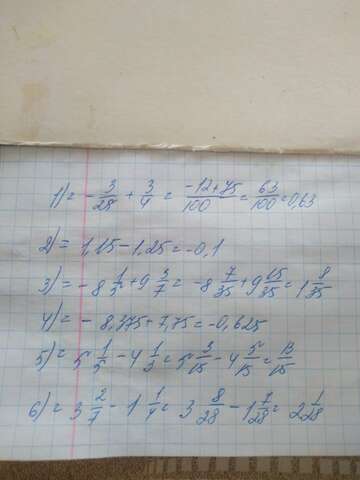 1) = - 3/25 + 3/4 = -12+75/100 = 63/100 = 0,63
2) = 1,15 - 1,25 = -0,1
3) = -8 1/5 + 9 3/7 = -8 7/35 + 9 15/35 = 1 8/35
4) = - 8,375 + 7,75 = -0,625
5) = 5 1/5 - 4 1/3 = 5 3/15 - 4 5/15 = 13/15
6) = 3 2/7 - 1 1/4 = 3 8/28 - 1 7/28 = 2 1/28